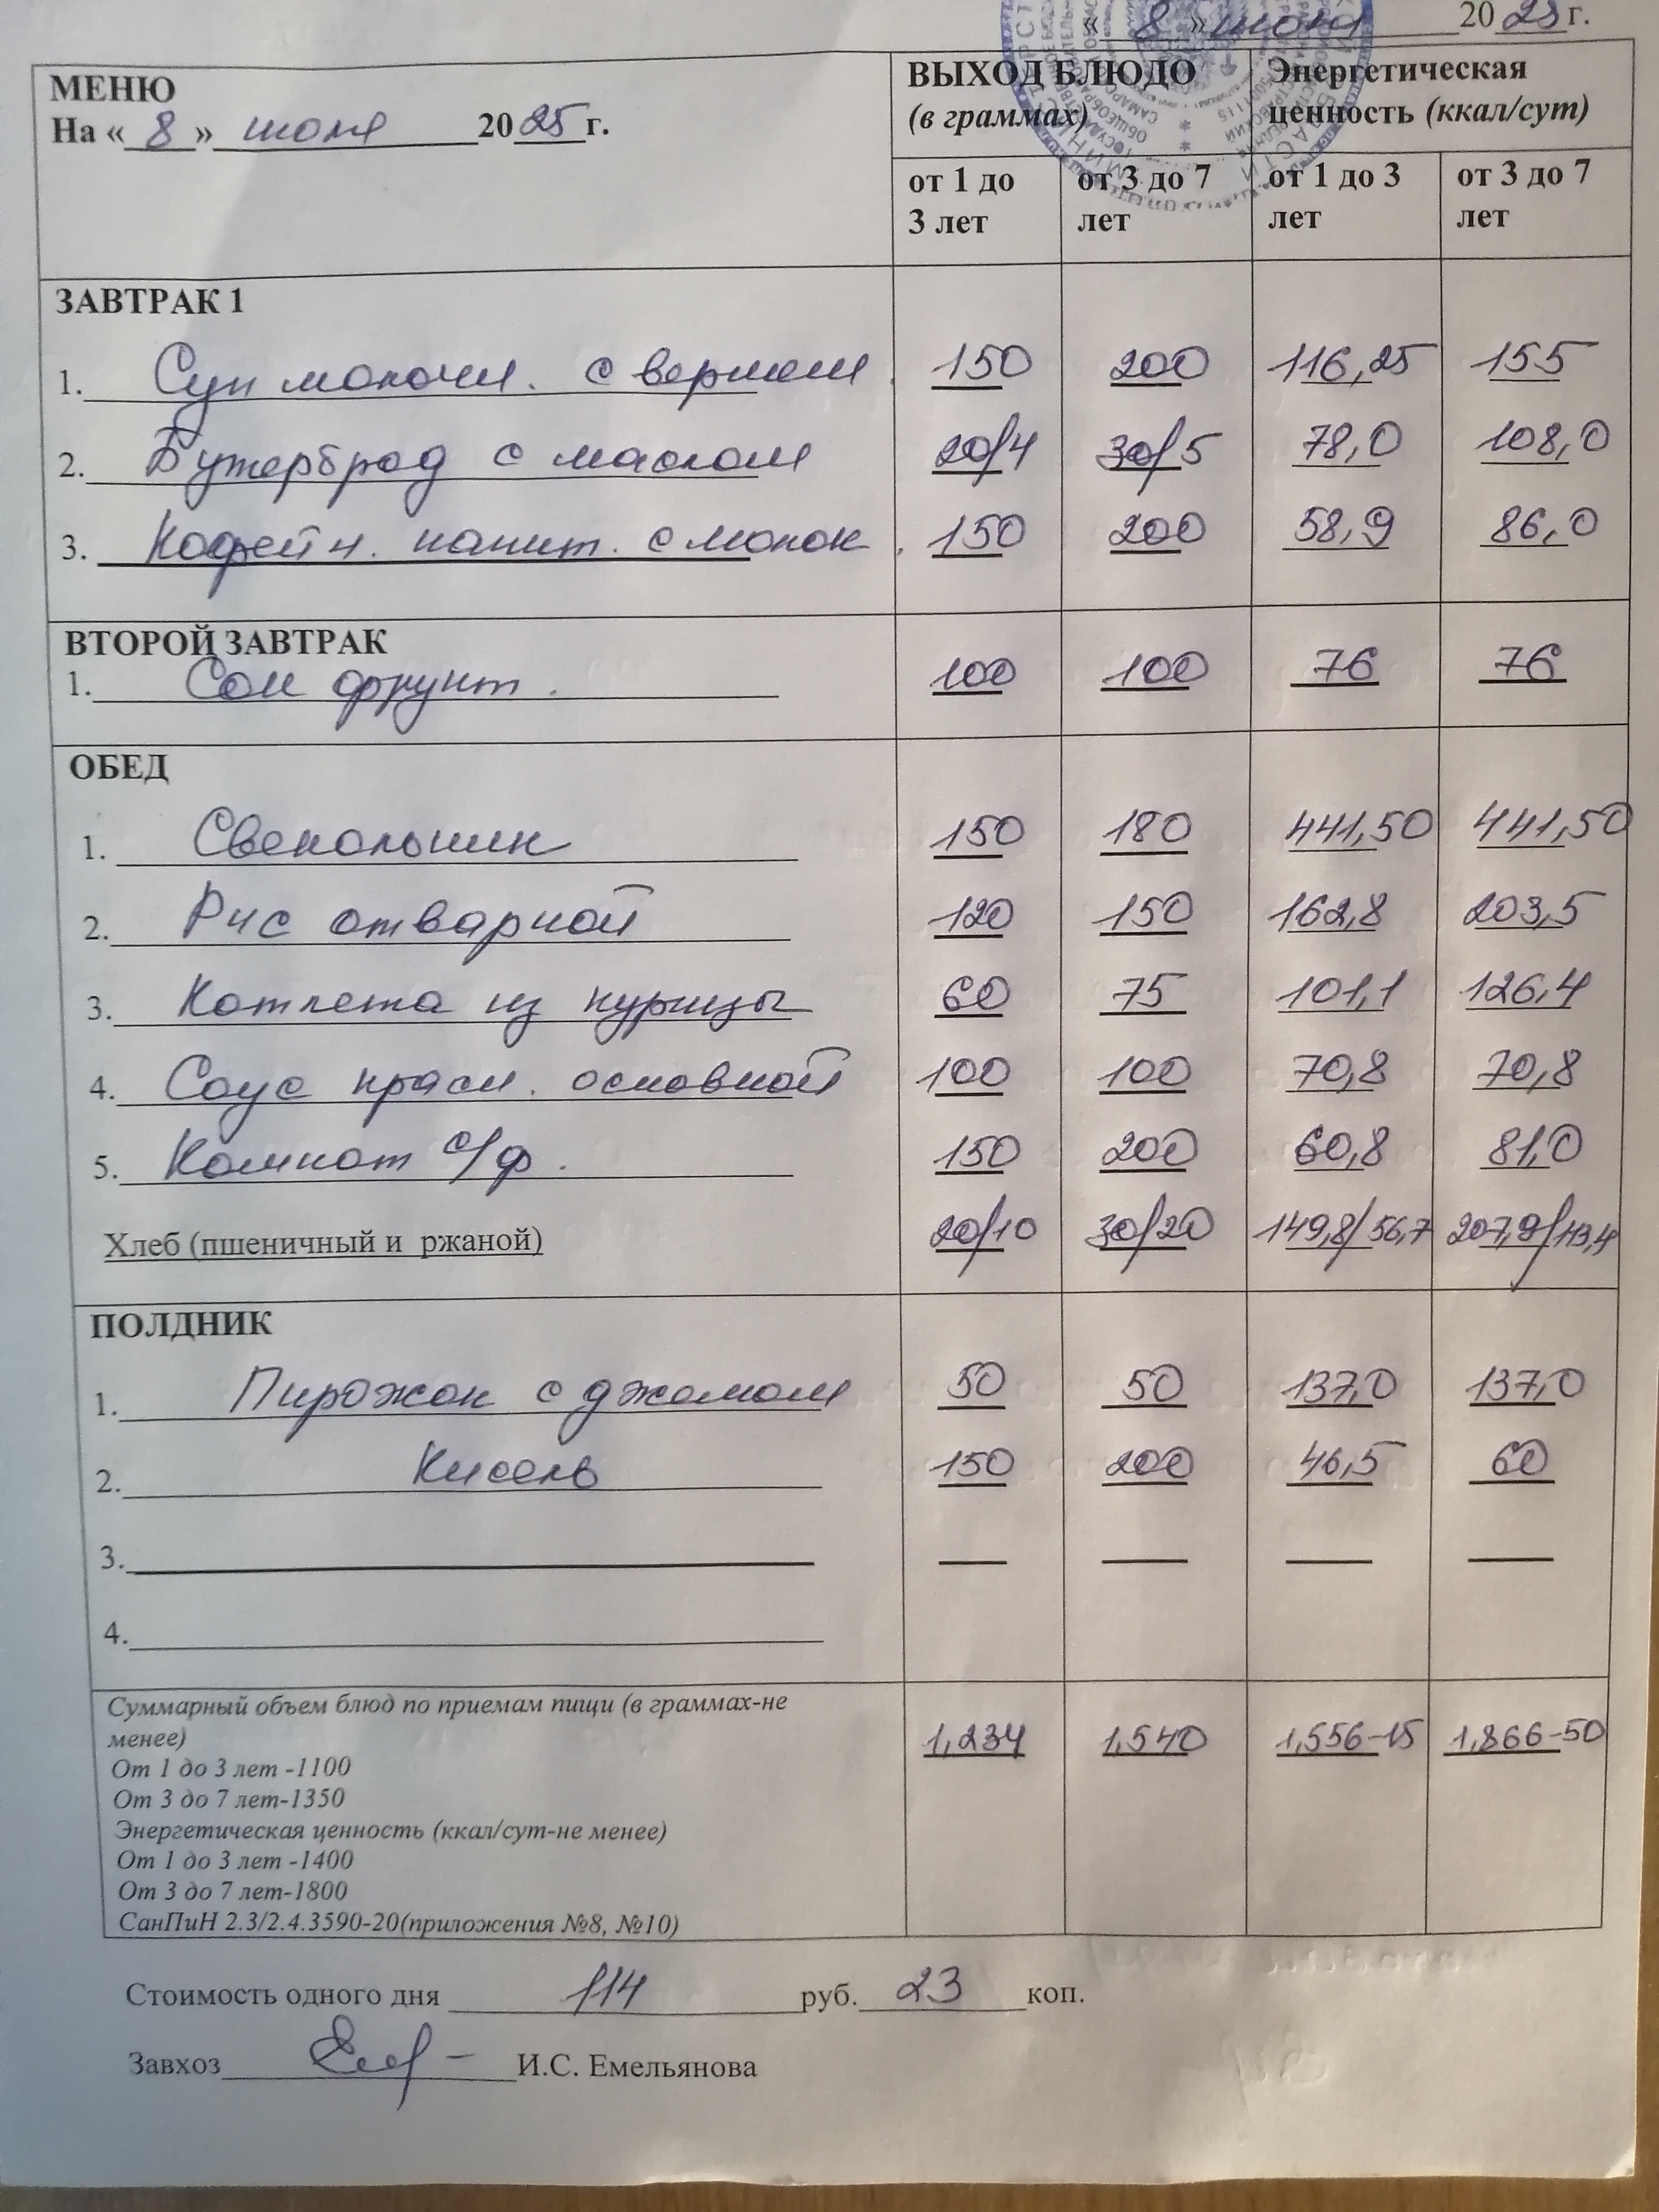 « 8 » июля 2025г.
МЕНЮ
На « 8 » июля 2025 г.
ВЫХОД БЛЮДО
(в граммах)
Энергетическая
ценность (ккал/сут)
от 1 до 3 лет от 3 до 7 лет от 1 до 3 лет от 3 до 7 лет
ЗАВТРАК 1
1. Суп молочн. с вермеш. 150 200 116,25 155
2. Бутерброд с маслом 20/4 30/5 78,0 108,0
3. Кофейн. напит. с молок. 150 200 58,9 86,0
ВТОРОЙ ЗАВТРАК
1. Сок фрукт. 100 100 76 76
ОБЕД
1. Свекольник 150 180 441,50 441,50
2. Рис отварной 120 150 162,8 203,5
3. Котлета из курицы 60 75 101,1 126,4
4. Соус красн. основной 100 100 70,8 70,8
5. Компот с/ф. 150 200 60,8 81,0
Хлеб (пшеничный и ржаной) 20/10 30/20 149,8/56,7 207,9/113,4
ПОЛДНИК
1. Пирожок с джемом 50 50 137,0 137,0
2. Кисель 150 200 46,5 60
3.
4.
Суммарный объем блюд по приемам пищи (в граммах-не
менее) 1,234 1,540 1,556-15 1,866-50
От 1 до 3 лет -1100
От 3 до 7 лет-1350
Энергетическая ценность (ккал/сут-не менее)
От 1 до 3 лет -1400
От 3 до 7 лет-1800
СанПиН 2.3/2.4.3590-20(приложения №8, №10)
Стоимость одного дня 114 руб. 23 коп.
Завхоз И.С. Емельянова